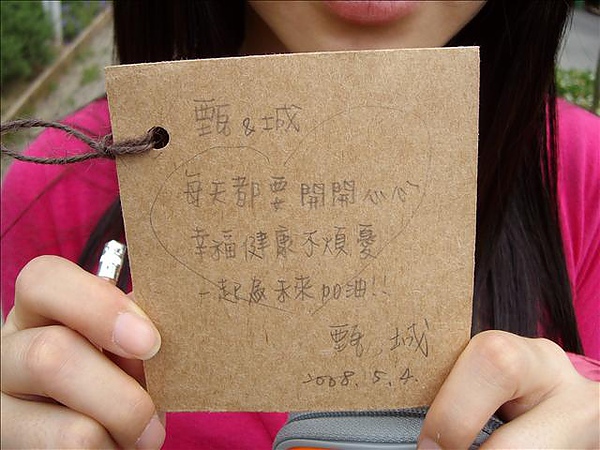 甄&城
每天都要開開心心
幸福健康不煩憂
一起為未來加油!!
甄、城
2008.5.4.